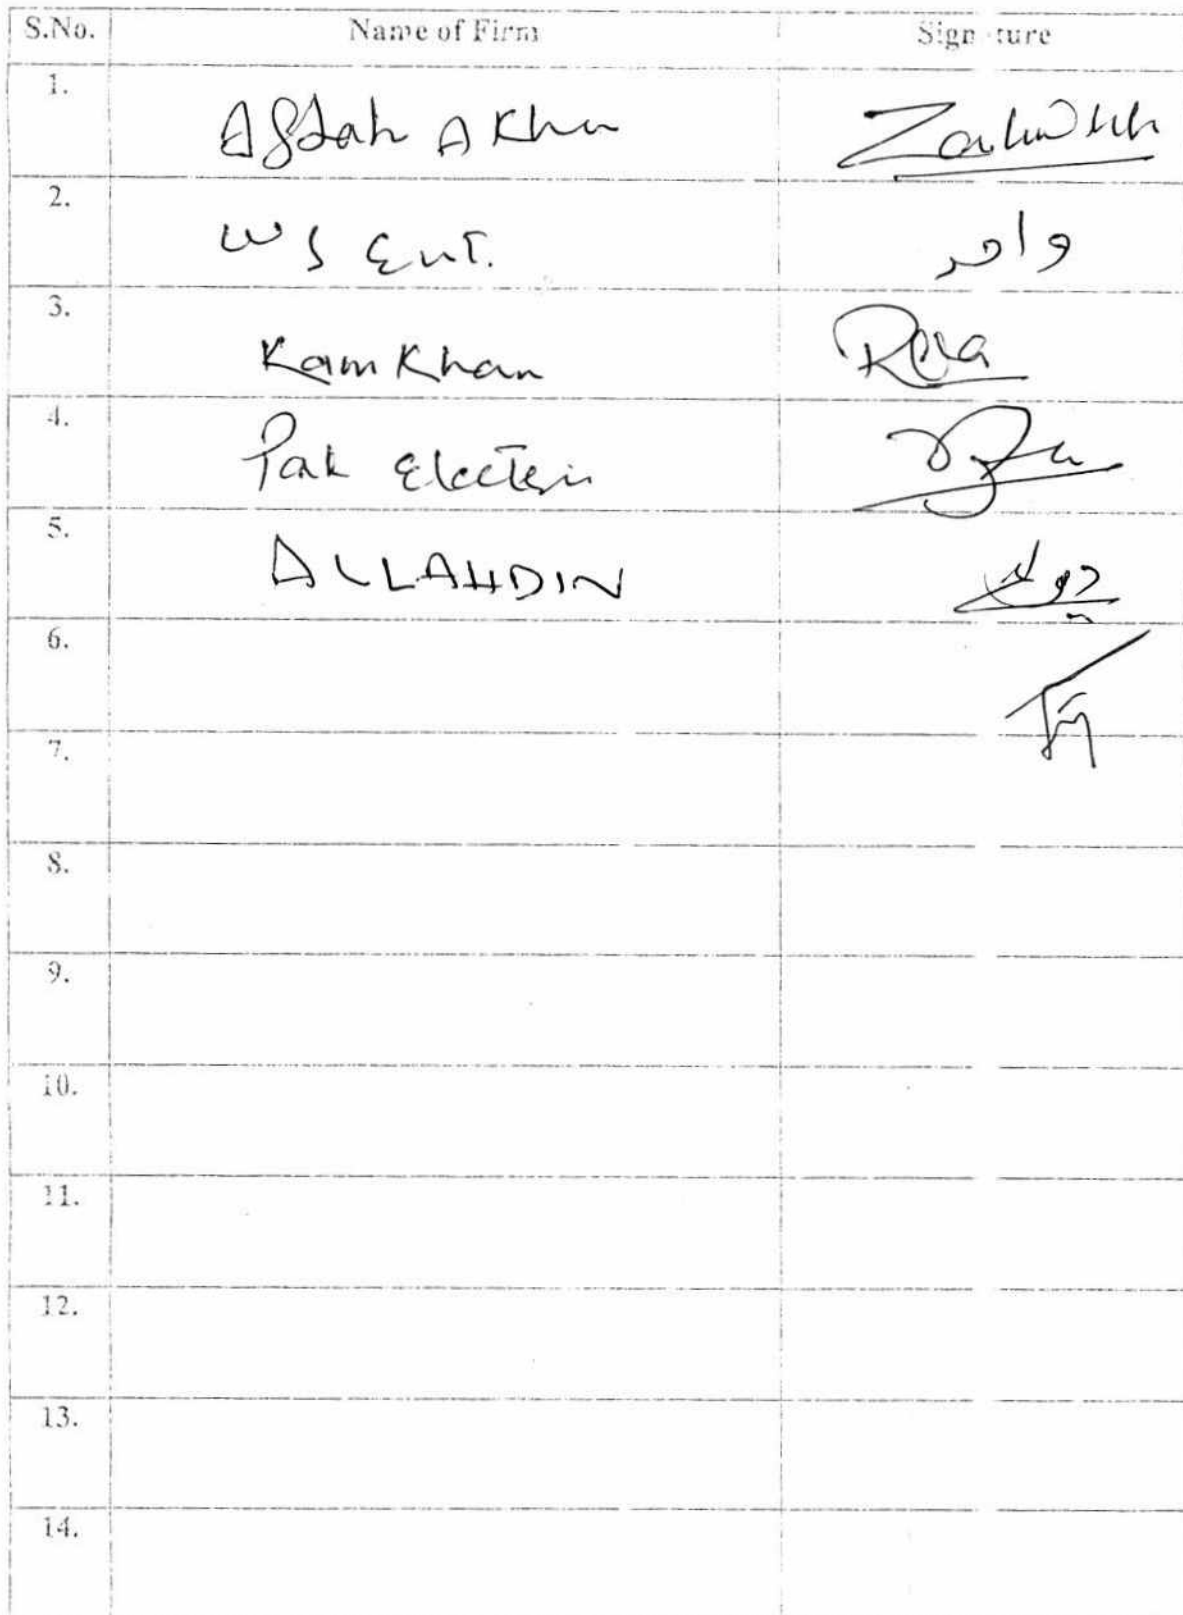 S.No. Name of Firm Signature
1. Aftab A Khan
2. WS Ent. واحد
3. Kam Khan
4. Pak Electric
5. ALLAHDIN
6.
7.
8.
9.
10.
11.
12.
13.
14.